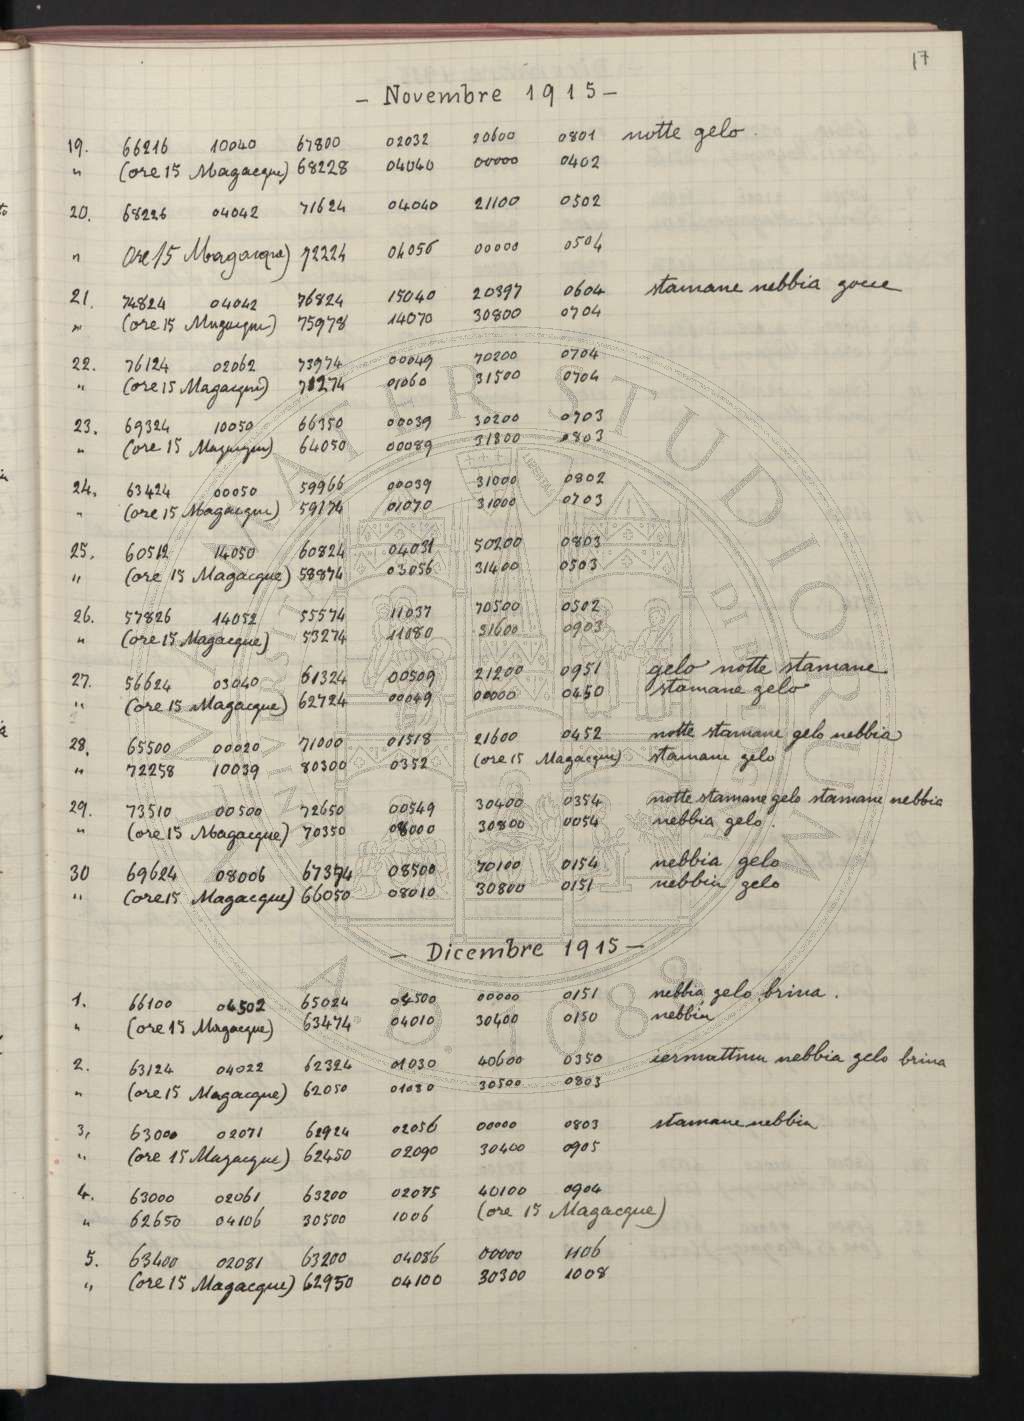 17
- Novembre 1915 -
19. 66216 10040 67800 02032 20600 0801 notte gelo.
" (ore 15 Magacque) 68228 04040 00000 0402
20. 68226 04042 71624 04040 21100 0502
" Ore 15 Magacque) 72224 04056 00000 0504
21. 74824 04042 76824 15040 20397 0604 stamane nebbia gocce
" (ore 15 Magacque) 75978 14070 30800 0704
22. 76124 02062 73974 00049 70200 0704
" (ore 15 Magacque) 71274 01060 31500 0704
23. 69324 10050 66350 00039 30200 0703
" (ore 15 Magacque) 64050 00089 31800 0803
24. 63424 00050 59966 00039 31000 0802
" (ore 15 Magacque) 59174 01070 31000 0703
25. 60512 14050 60824 04031 50200 0803
" (ore 15 Magacque) 58874 03056 31400 0503
26. 57826 14052 55574 11037 70500 0502
" (ore 15 Magacque) 53274 11080 31600 0903
27. 56624 03040 61324 00509 21200 0951 gelo notte stamane
" (ore 15 Magacque) 62724 00049 00000 0450 stamane gelo
28. 65500 00020 71000 01518 21600 0452 notte stamane gelo nebbia
" 72258 10039 80300 0352 (ore 15 Magacque) stamane gelo
29. 73510 00500 72650 00549 30400 0354 notte stamane gelo stamane nebbia
" (ore 15 Magacque) 70350 08000 30800 0054 nebbia gelo.
30 69624 08006 67374 08500 70100 0154 nebbia gelo
" (ore 15 Magacque) 66050 08010 30800 0151 nebbia gelo
- Dicembre 1915 -
1. 66100 04502 65024 04500 00000 0151 nebbia gelo brina.
" (ore 15 Magacque) 63474 04010 30400 0150 nebbia
2. 63124 04022 62324 01030 40600 0350 iermattina nebbia gelo brina
" (ore 15 Magacque) 62050 01030 30500 0803
3. 63000 02071 62924 02056 00000 0803 stamane nebbia
" (ore 15 Magacque) 62450 02090 30400 0905
4. 63000 02061 63200 02075 40100 0904
" 62650 04106 30500 1006 (ore 15 Magacque)
5. 63400 02081 63200 04086 00000 1106
" (ore 15 Magacque) 62950 04100 30300 1008
ALMA MATER STUDIORUM
A.D. 1088